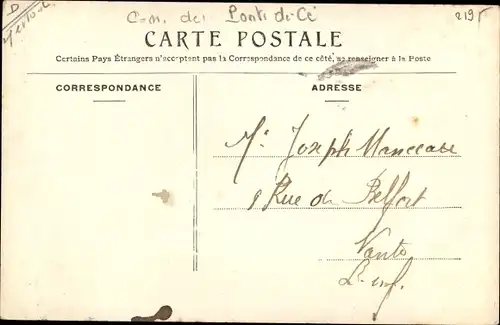 Com. des Ponts de Cé
219
CARTE POSTALE
Certains Pays Étrangers n'acceptent pas la Correspondance de ce côté, se renseigner à la Poste
CORRESPONDANCE
ADRESSE
Mr Joseph
8 Rue de Belfort
Nantes
L. inf.